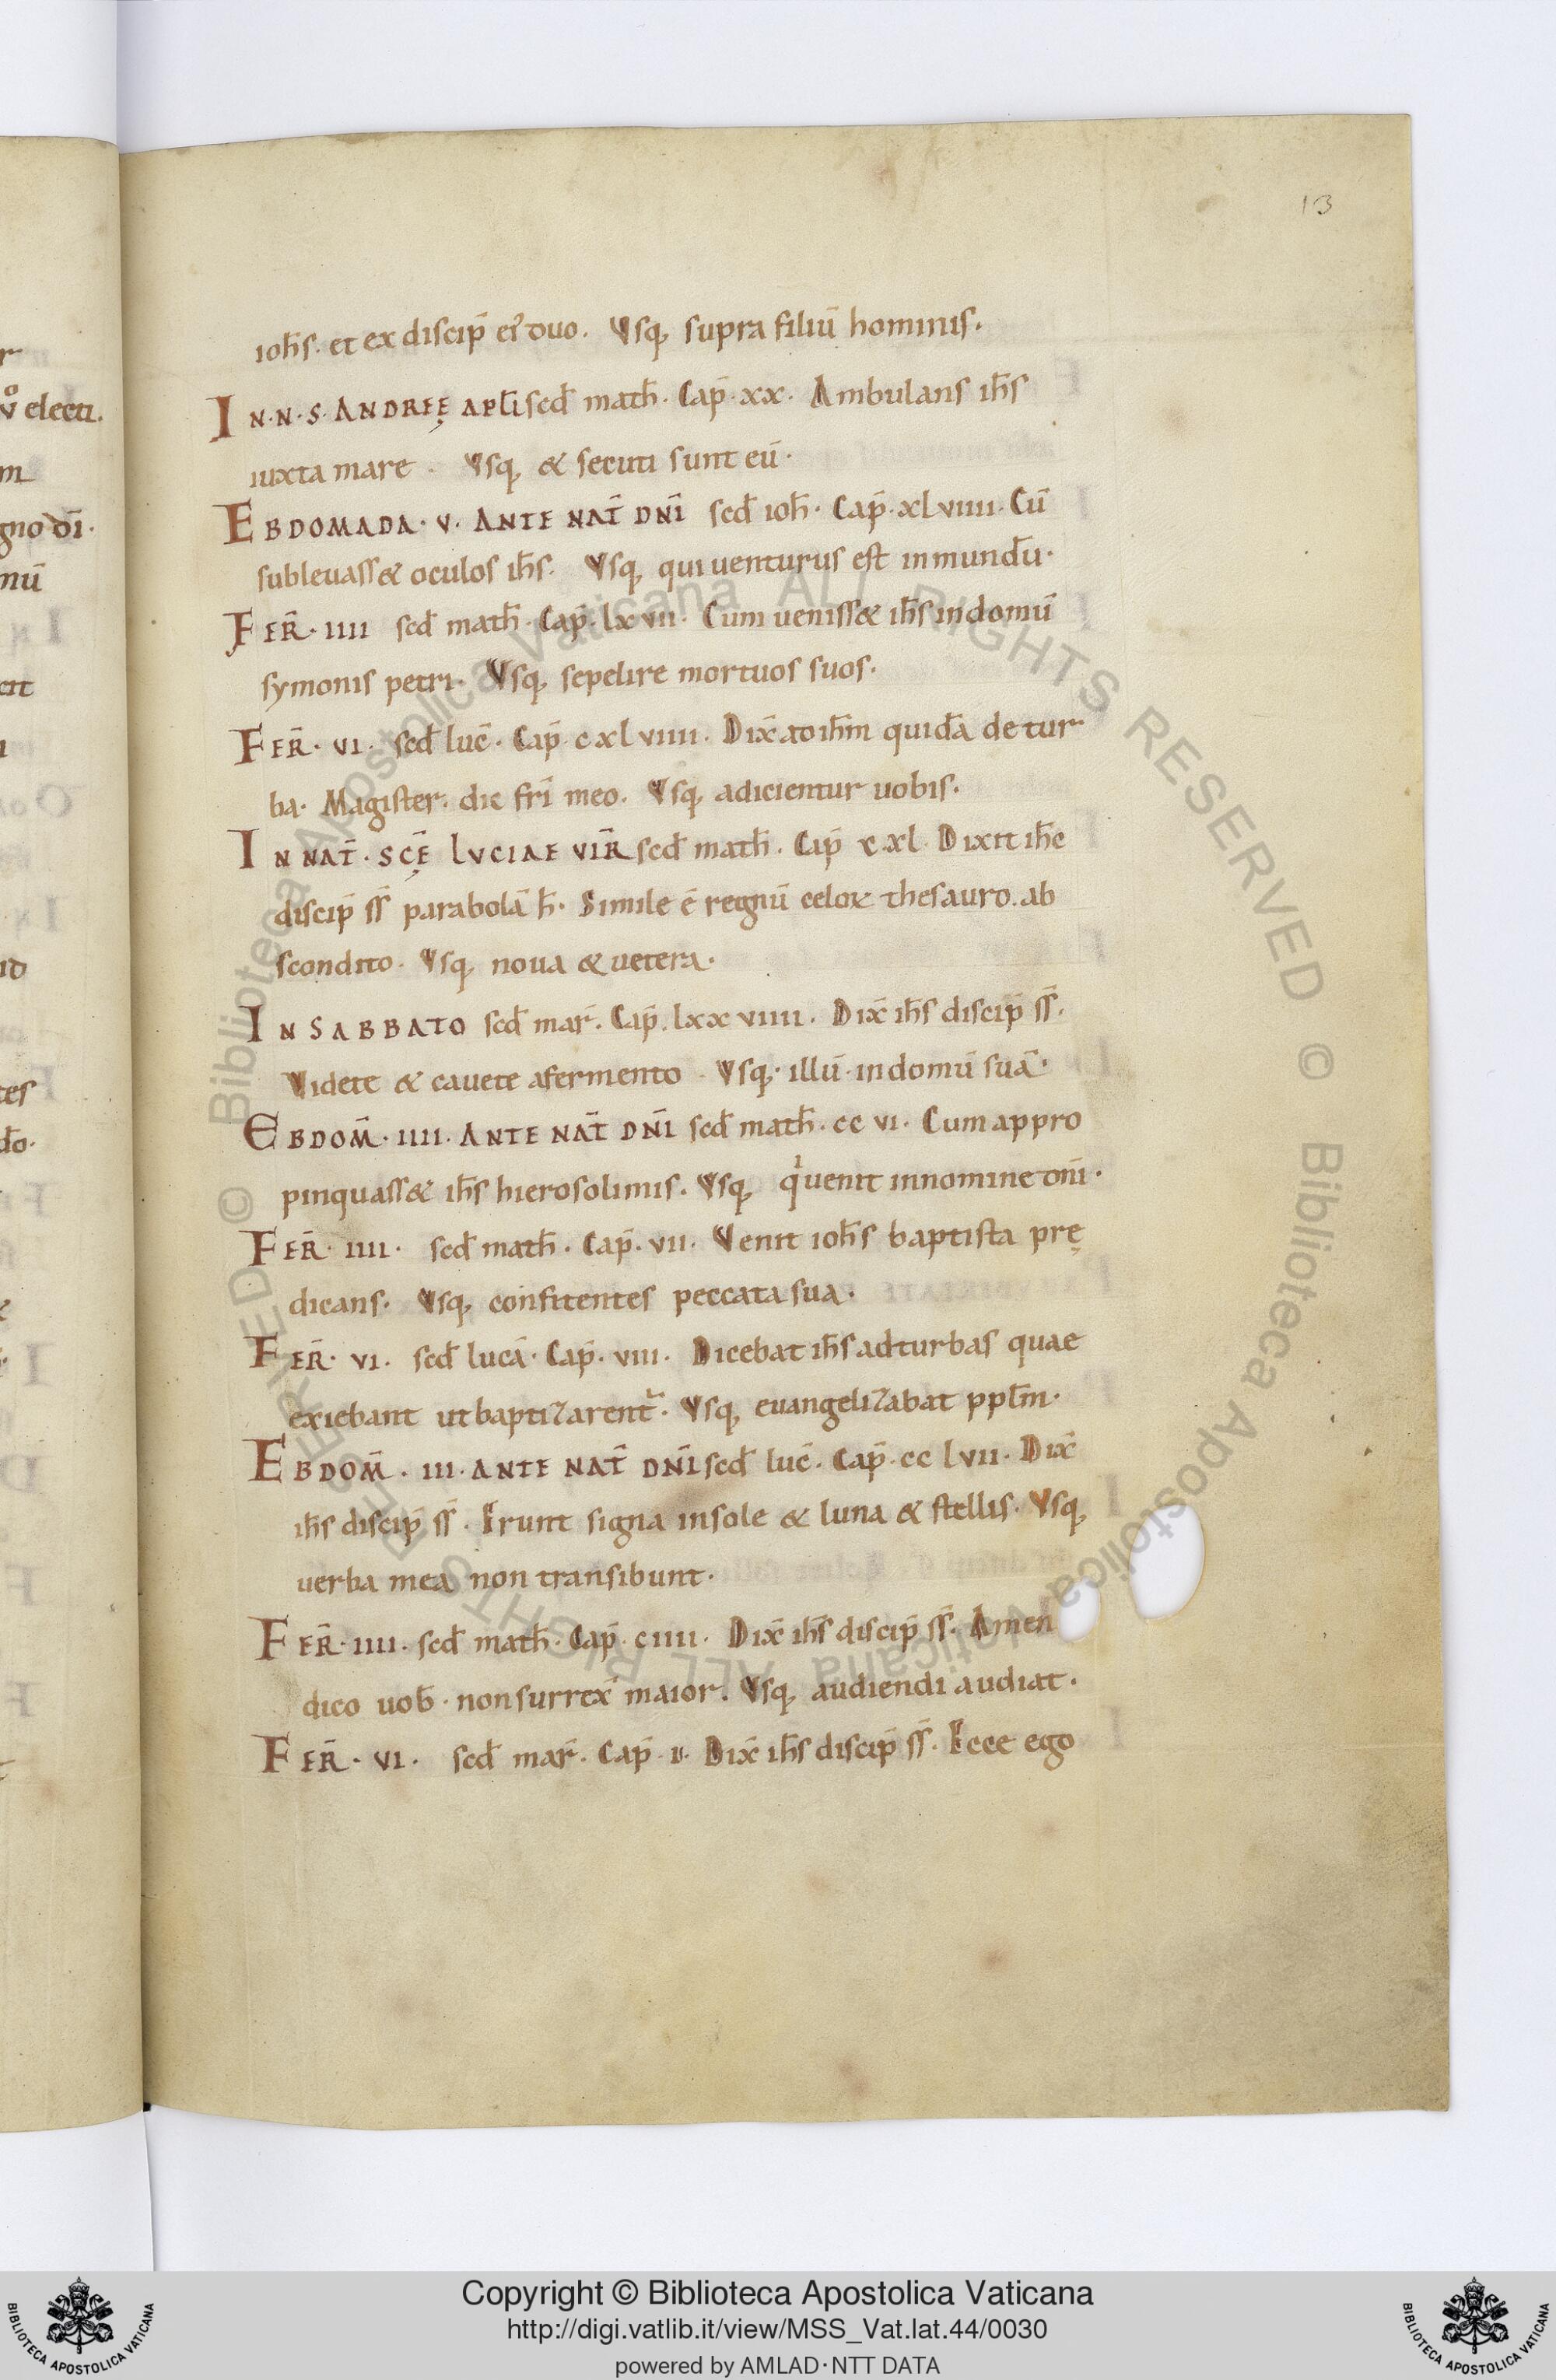 13
ioh̄s. et ex discip̄ ei᷒ duo. Usq, supra filiū hominis.
IN. N. S. ANDREĘ APL̄I scd̄ math̄. Cap̄. xx. Ambulans ih̄s
iuxta mare. Usq, & secuti sunt eū.
EBDOMADA. V. ANTE NAT̄ DN̄I scd̄ ioh̄. Cap̄. xlviiii. Cū
subleuass& oculos ih̄s. Usq, qui uenturus est in mundū.
FER̄. IIII scd̄ math̄. Cap̄. lxvii. Cum ueniss& ih̄s in domū
symonis petri. Usq, sepelire mortuos suos.
FER̄. VI. scd̄ luc̄. Cap̄. cxlviiii. Dix̄ ad ih̄m quidā de tur
ba. Magister. dic fr̄i meo. Usq, adicientur uobis.
IN NAT̄. SCĘ̄ LUCIAE VIR̄ scd̄ math̄. Cap̄ cxl. Dixit ih̄c
discip̄ ss̄ parabolā h̄. Simile ē regnū celoꝝ thesauro. ab
scondito. Usq, noua & uetera.
IN SABBATO scd̄ mar̄. Cap̄. lxxviiii. Dix̄ ih̄s discip̄ ss̄.
Videte & cauete a fermento. Usq,. illū in domū suā.
EBDOM̄. IIII. ANTE NAT̄ DN̄I scd̄ math̄. cc vi. Cum appro
pinquass& ih̄s hierosolimis. Usq, qi uenit in nomine dn̄i.
FER̄. IIII. scd̄ math̄. Cap̄. vii. Venit ioh̄s baptista prę
dicans. Usq, confitentes peccata sua.
FER̄. VI. scd̄ lucā. Cap̄. viii. Dicebat ih̄s ad turbas quae
exiebant ut baptizarent᷑. Usq, euangelizabat ppl̄m.
EBDOM̄. III. ANTE NAT̄ DN̄I scd̄ luc̄. Cap̄. cc lvii. Dix̄
ih̄s discip̄ ss̄. Erunt signa in sole & luna & stellis. Usq,
uerba mea non transibunt.
FER̄. IIII. scd̄ math̄. Cap̄. ciiii. Dix̄ ih̄s discip̄ ss̄. Amen
dico uob̄. non surrex̄ maior. Usq, audiendi audiat.
FER̄. VI. scd̄ mar̄. Cap̄. ii. Dix̄ ih̄s discip̄ ss̄. Ecce ego
Copyright © Biblioteca Apostolica Vaticana
http://digi.vatlib.it/view/MSS_Vat.lat.44/0030
powered by AMLAD·NTT DATA
BIBLIOTECA APOSTOLICA VATICANA
BIBLIOTECA APOSTOLICA VATICANA
© Biblioteca Apostolica Vaticana ALL RIGHTS RESERVED © Biblioteca Apostolica Vaticana ALL RIGHTS RESERVED